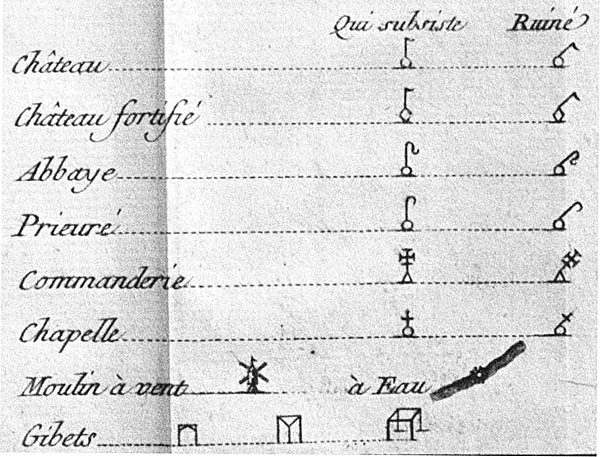 Qui subsiste Ruiné
Château
Château fortifié
Abbaye
Prieuré
Commanderie
Chapelle
Moulin à vent à Eau
Gibets